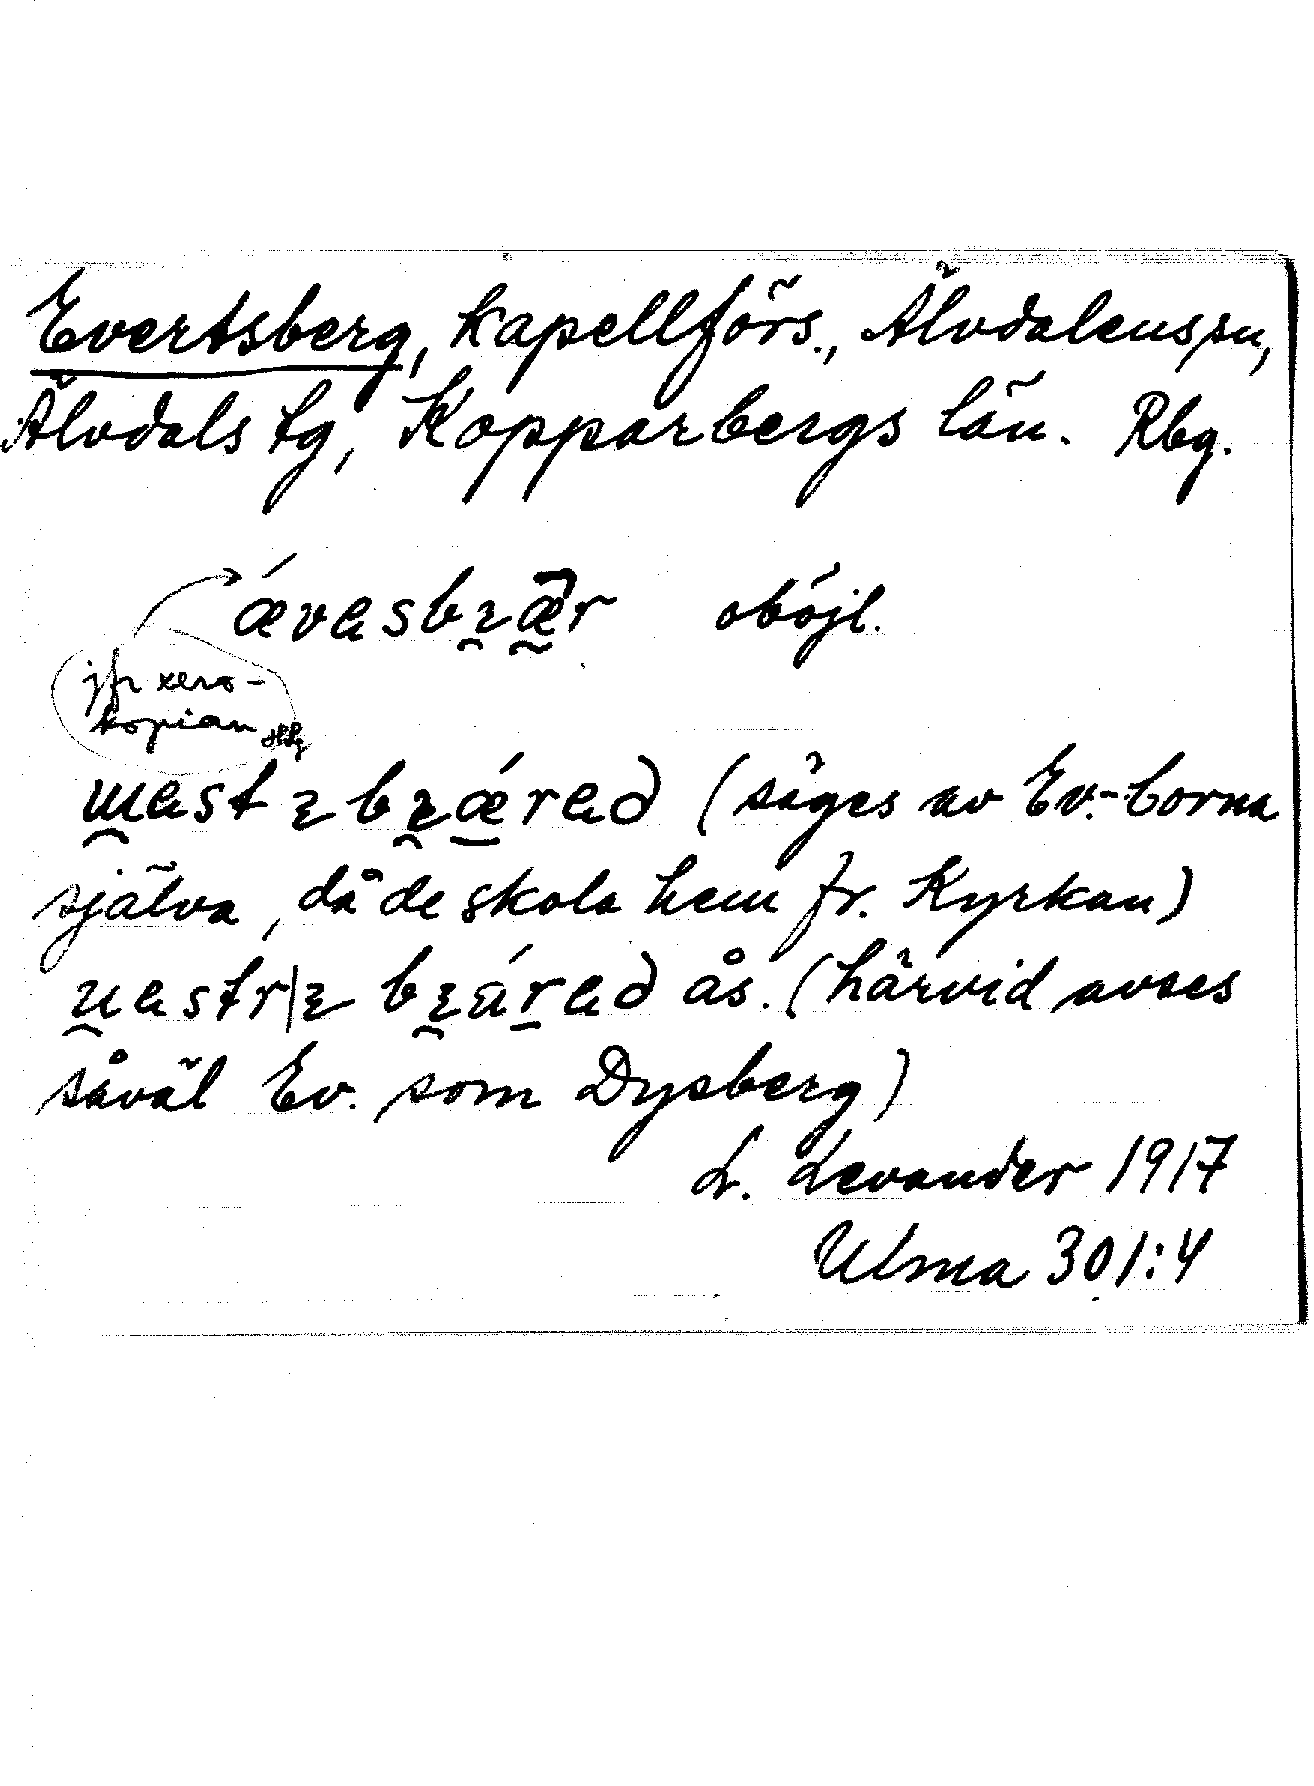 Evertsberg, kapellförs., Älvdalens sn,
Älvdals tg, Kopparbergs län. Rbg.
ǽvɐsbɪær oböjl.
jfr xero-
kopian
wɐst ɪ bɪǽrɐð (säges av Ev.-borna
själva, då de skola hem fr. Kyrkan)
uɐstr|ɪ bɪárɐð ås. (härvid avses
såväl Ev. som Dysberg)
L. Levander 1917
Ulma 301:4